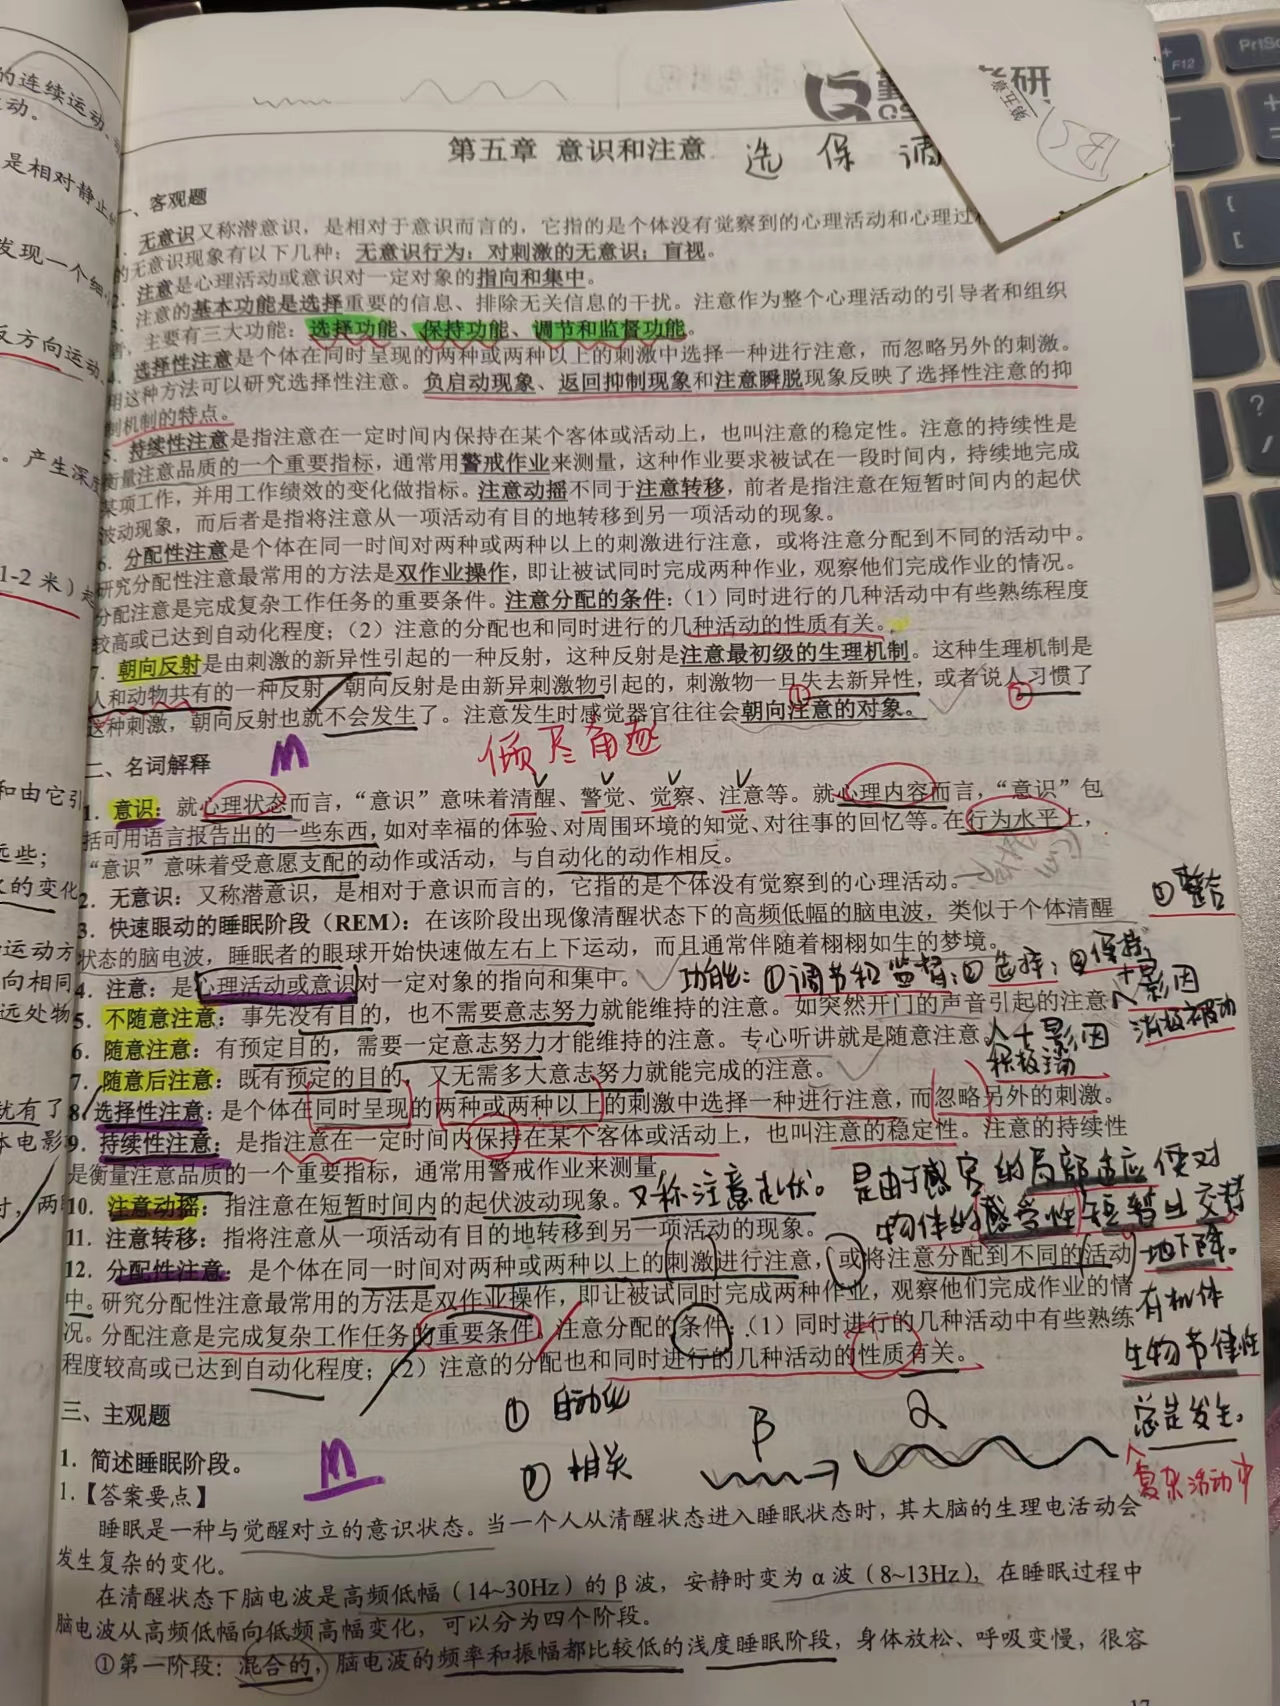 的连续运动、
动。
是相对静止的
发现一个细
反方向运动、
。产生深度
1-2 米）起
和由它引
远些；
的变化
运动方
向相同
远处物
就有了
本电影
时，两
研
BC
F12
PrtSc
第五章 意识和注意 选 保 调
一、客观题
无意识又称潜意识，是相对于意识而言的，它指的是个体没有觉察到的心理活动和心理过
的无意识现象有以下几种：无意识行为；对刺激的无意识；盲视。
2. 注意是心理活动或意识对一定对象的指向和集中。
3. 注意的基本功能是选择重要的信息、排除无关信息的干扰。注意作为整个心理活动的引导者和组织
者，主要有三大功能：选择功能、保持功能、调节和监督功能。
4. 选择性注意是个体在同时呈现的两种或两种以上的刺激中选择一种进行注意，而忽略另外的刺激。
用这种方法可以研究选择性注意。负启动现象、返回抑制现象和注意瞬脱现象反映了选择性注意的抑
制机制的特点。
5. 持续性注意是指注意在一定时间内保持在某个客体或活动上，也叫注意的稳定性。注意的持续性是
衡量注意品质的一个重要指标，通常用警戒作业来测量，这种作业要求被试在一段时间内，持续地完成
某项工作，并用工作绩效的变化做指标。注意动摇不同于注意转移，前者是指注意在短暂时间内的起伏
波动现象，而后者是指将注意从一项活动有目的地转移到另一项活动的现象。
6. 分配性注意是个体在同一时间对两种或两种以上的刺激进行注意，或将注意分配到不同的活动中。
研究分配性注意最常用的方法是双作业操作，即让被试同时完成两种作业，观察他们完成作业的情况。
分配注意是完成复杂工作任务的重要条件。注意分配的条件：（1）同时进行的几种活动中有些熟练程度
较高或已达到自动化程度；（2）注意的分配也和同时进行的几种活动的性质有关。
7. 朝向反射是由刺激的新异性引起的一种反射，这种反射是注意最初级的生理机制。这种生理机制是
人和动物共有的一种反射，朝向反射是由新异刺激物引起的，刺激物一旦失去新异性，或者说人习惯了
① ②
这种刺激，朝向反射也就不会发生了。注意发生时感觉器官往往会朝向注意的对象。
二、名词解释 M
1. 意识：就心理状态而言，“意识”意味着清醒、警觉、觉察、注意等。就心理内容而言，“意识”包
括可用语言报告出的一些东西，如对幸福的体验、对周围环境的知觉、对往事的回忆等。在行为水平上，
“意识”意味着受意愿支配的动作或活动，与自动化的动作相反。
2. 无意识：又称潜意识，是相对于意识而言的，它指的是个体没有觉察到的心理活动。
② 整合
3. 快速眼动的睡眠阶段（REM）：在该阶段出现像清醒状态下的高频低幅的脑电波，类似于个体清醒
状态的脑电波，睡眠者的眼球开始快速做左右上下运动，而且通常伴随着栩栩如生的梦境。
4. 注意：是心理活动或意识对一定对象的指向和集中。 功能：①调节和监督；②选择；③保持
+影因
5. 不随意注意：事先没有目的，也不需要意志努力就能维持的注意。如突然开门的声音引起的注意
消极被动
6. 随意注意：有预定目的，需要一定意志努力才能维持的注意。专心听讲就是随意注意。 人+影因
积极主动
7. 随意后注意：既有预定的目的，又无需多大意志努力就能完成的注意。
8. 选择性注意：是个体在同时呈现的两种或两种以上的刺激中选择一种进行注意，而忽略另外的刺激。
9. 持续性注意：是指注意在一定时间内保持在某个客体或活动上，也叫注意的稳定性。注意的持续性
是衡量注意品质的一个重要指标，通常用警戒作业来测量。
10. 注意动摇：指注意在短暂时间内的起伏波动现象。又称注意起伏。是由于感官的局部适应使对
物体的感受性短暂出交替
地下降。
11. 注意转移：指将注意从一项活动有目的地转移到另一项活动的现象。
12. 分配性注意：是个体在同一时间对两种或两种以上的刺激进行注意，或将注意分配到不同的活动
中。研究分配性注意最常用的方法是双作业操作，即让被试同时完成两种作业，观察他们完成作业的情
有机体
况。分配注意是完成复杂工作任务的重要条件。注意分配的条件：（1）同时进行的几种活动中有些熟练
生物节律性
程度较高或已达到自动化程度；（2）注意的分配也和同时进行的几种活动的性质有关。
总是发生。
复杂活动中
① 自动化
② 相关
β α
三、主观题
1. 简述睡眠阶段。 M
1.【答案要点】
睡眠是一种与觉醒对立的意识状态。当一个人从清醒状态进入睡眠状态时，其大脑的生理电活动会
发生复杂的变化。
在清醒状态下脑电波是高频低幅（14~30Hz）的 β 波，安静时变为 α 波（8~13Hz），在睡眠过程中
脑电波从高频低幅向低频高幅变化，可以分为四个阶段。
①第一阶段：混合的，脑电波的频率和振幅都比较低的浅度睡眠阶段，身体放松、呼吸变慢，很容
17